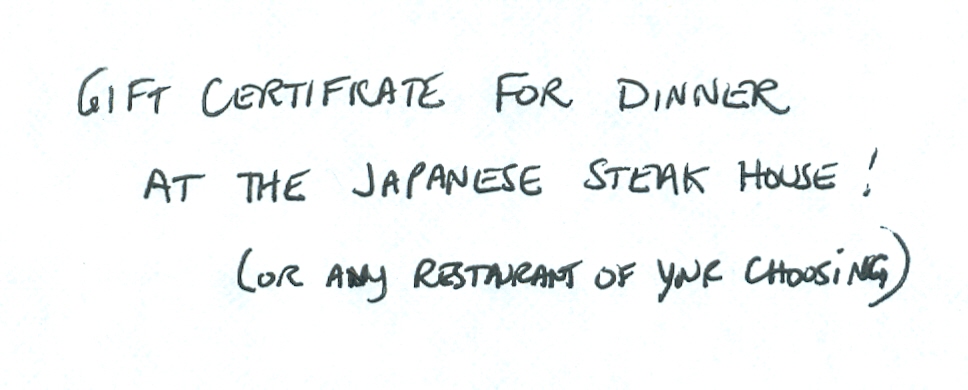 GIFT CERTIFICATE FOR DINNER
AT THE JAPANESE STEAK HOUSE!
(OR ANY RESTAURANT OF YOUR CHOOSING)